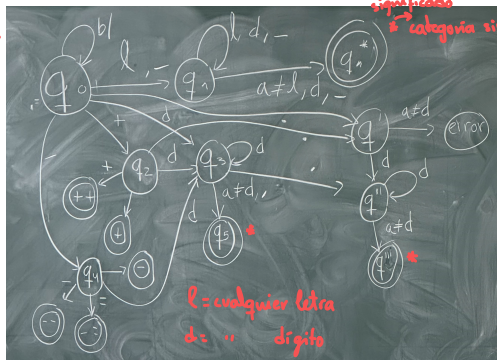 significado
* → categoría si
bl
l, -
l d, -
q0
q1
q1*
a≠l, d, -
+
d
.
q'
a≠d
error
+
q2
d
q3
d
.
d
-
++
+
a≠d, .
q''
d
d
q5
*
a≠d
q'''
*
q4
-
-
=
--
-=
l = cualquier letra
d = " dígito